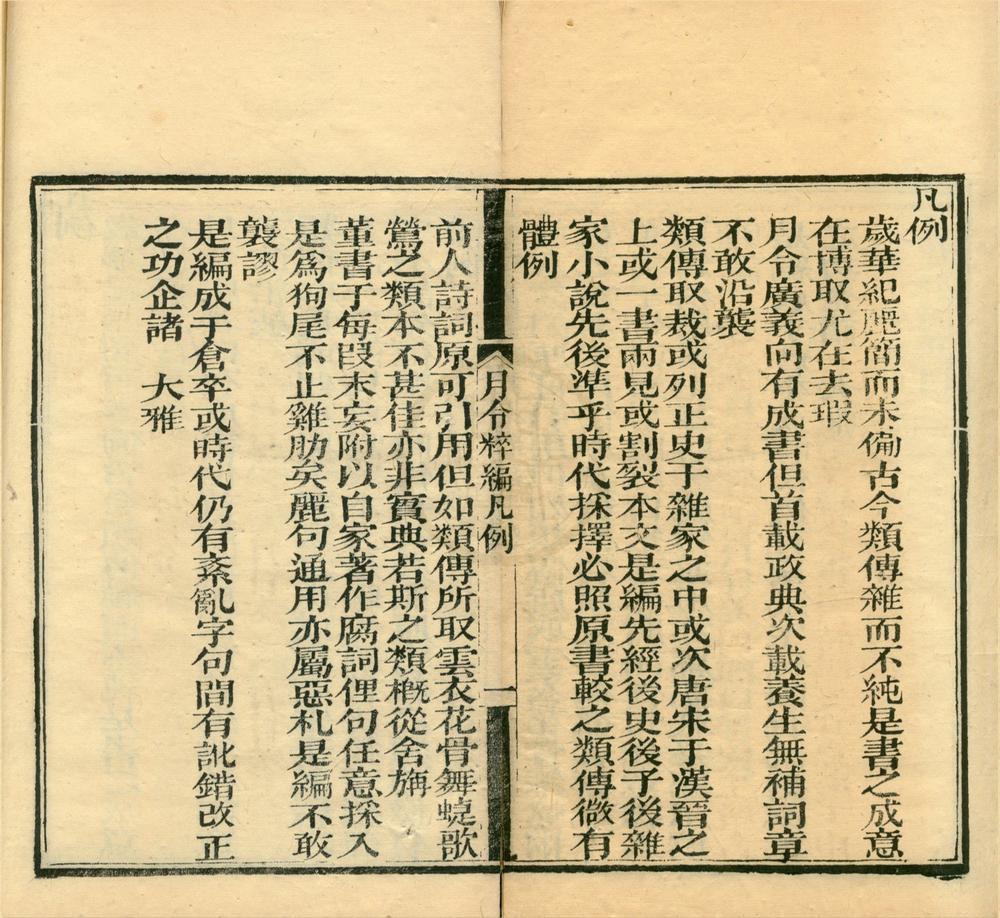 凡例
歲華紀麗簡而未徧古今類傳雜而不純是書之成意
在博取尤在去瑕
月令廣義向有成書但首載政典次載養生無補詞章
不敢沿襲
類傳取裁或列正史于雜家之中或次唐宋于漢晉之
上或一書兩見或割裂本文是編先經後史後子後雜
家小說先後準乎時代採擇必照原書較之類傳微有
體例
月令粹編凡例
一
前人詩詞原可引用但如類傳所取雲衣花骨舞蜨歌
鶯之類本不甚佳亦非實典若斯之類槪從舍旃
董書于每段末妄附以自家著作腐詞俚句任意採入
是爲狗尾不止雞肋矣麗句通用亦屬惡札是編不敢
襲謬
是編成于倉卒或時代仍有紊亂字句間有訛錯改正
之功企諸 大雅